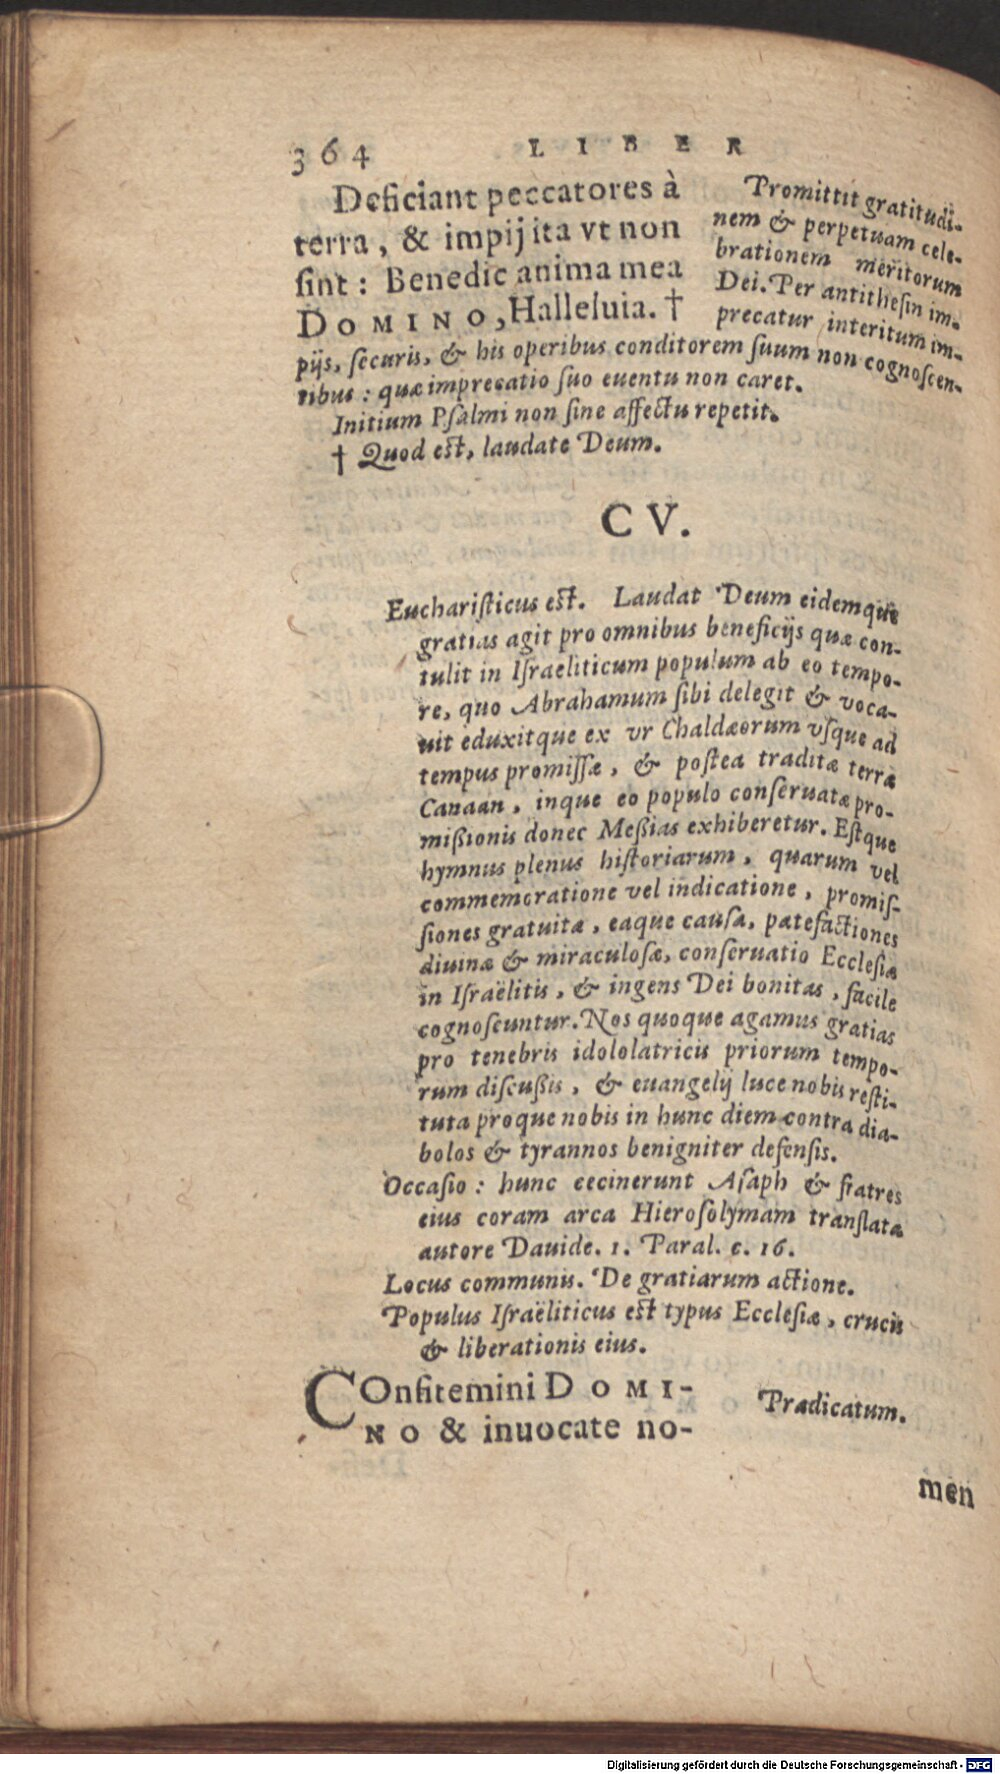 364 LIBER
Deficiant peccatores à
terra, & impij ita vt non
sint: Benedic anima mea
DOMINO, Halleluia. †
Promittit gratitudi-
nem & perpetuam cele-
brationem meritorum
Dei. Per antithesin im-
precatur interitum im-
pijs, securis, & his operibus conditorem suum non cognoscen-
tibus: quæ imprecatio suo euentu non caret.
Initium Psalmi non sine affectu repetit.
† Quod est, laudate Deum.
CV.
Eucharisticus est. Laudat Deum eidemque
gratias agit pro omnibus beneficijs quæ con-
tulit in Israeliticum populum ab eo tempo-
re, quo Abrahamum sibi delegit & voca-
uit eduxitque ex vr Chaldæorum vsque ad
tempus promissæ, & postea traditæ terræ
Canaan, inque eo populo conseruatæ pro-
mißionis donec Meßias exhiberetur. Estque
hymnus plenus historiarum, quarum vel
commemoratione vel indicatione, promis-
siones gratuitæ, eaque causa, patefactiones
diuinæ & miraculosæ, conseruatio Ecclesiæ
in Israëlitis, & ingens Dei bonitas, facile
cognoscuntur. Nos quoque agamus gratias
pro tenebris idololatricis priorum tempo-
rum discußis, & euangelij luce nobis resti-
tuta proque nobis in hunc diem contra dia-
bolos & tyrannos benigniter defensis.
Occasio: hunc cecinerunt Asaph & fratres
eius coram arca Hierosolymam translata
autore Dauide. 1. Paral. c. 16.
Locus communis. De gratiarum actione.
Populus Israëliticus est typus Ecclesiæ, crucis
& liberationis eius.
COnfitemini DOMI-
NO & inuocate no-
Prædicatum.
men
Digitalisierung gefördert durch die Deutsche Forschungsgemeinschaft - DFG